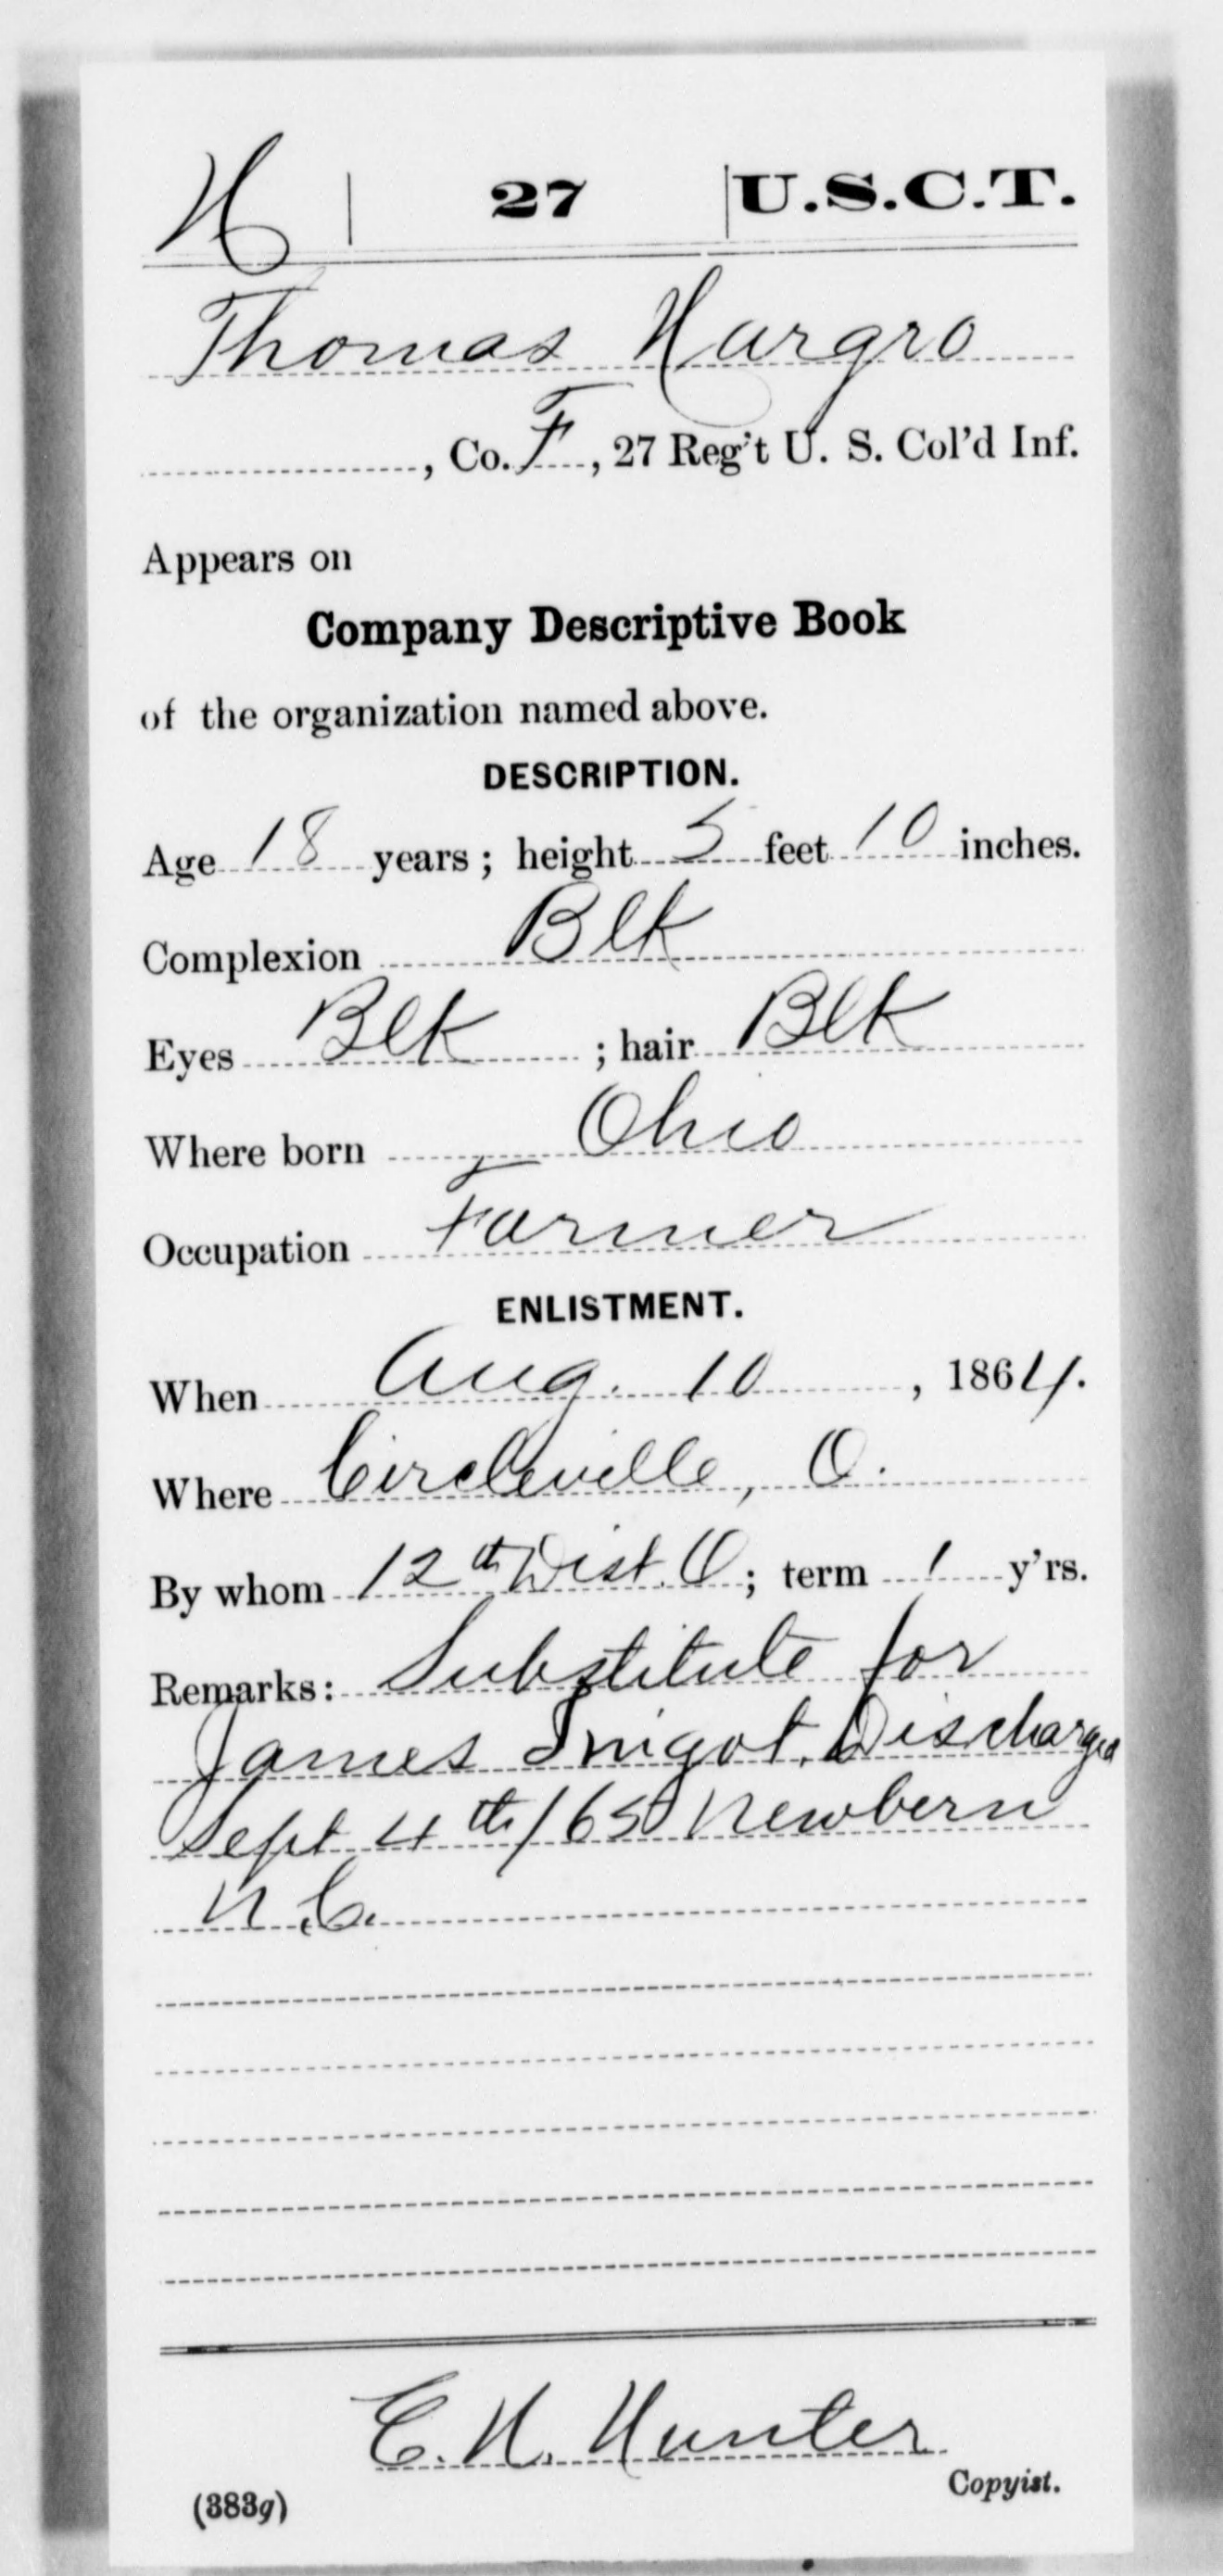 H | 27 | U.S.C.T.
Thomas Hargro
, Co. F, 27 Reg't U. S. Col'd Inf.
Appears on
Company Descriptive Book
of the organization named above.
DESCRIPTION.
Age 18 years; height 5 feet 10 inches.
Complexion Blk
Eyes Blk; hair Blk
Where born Ohio
Occupation Farmer
ENLISTMENT.
When Aug. 10, 1864.
Where Circleville, O.
By whom 12th Dist. O; term 1 y'rs.
Remarks: Substitute for
James Discharged
Sept 4th/65 Newbern
N.C.
C. H. Hunter
Copyist.
(383g)